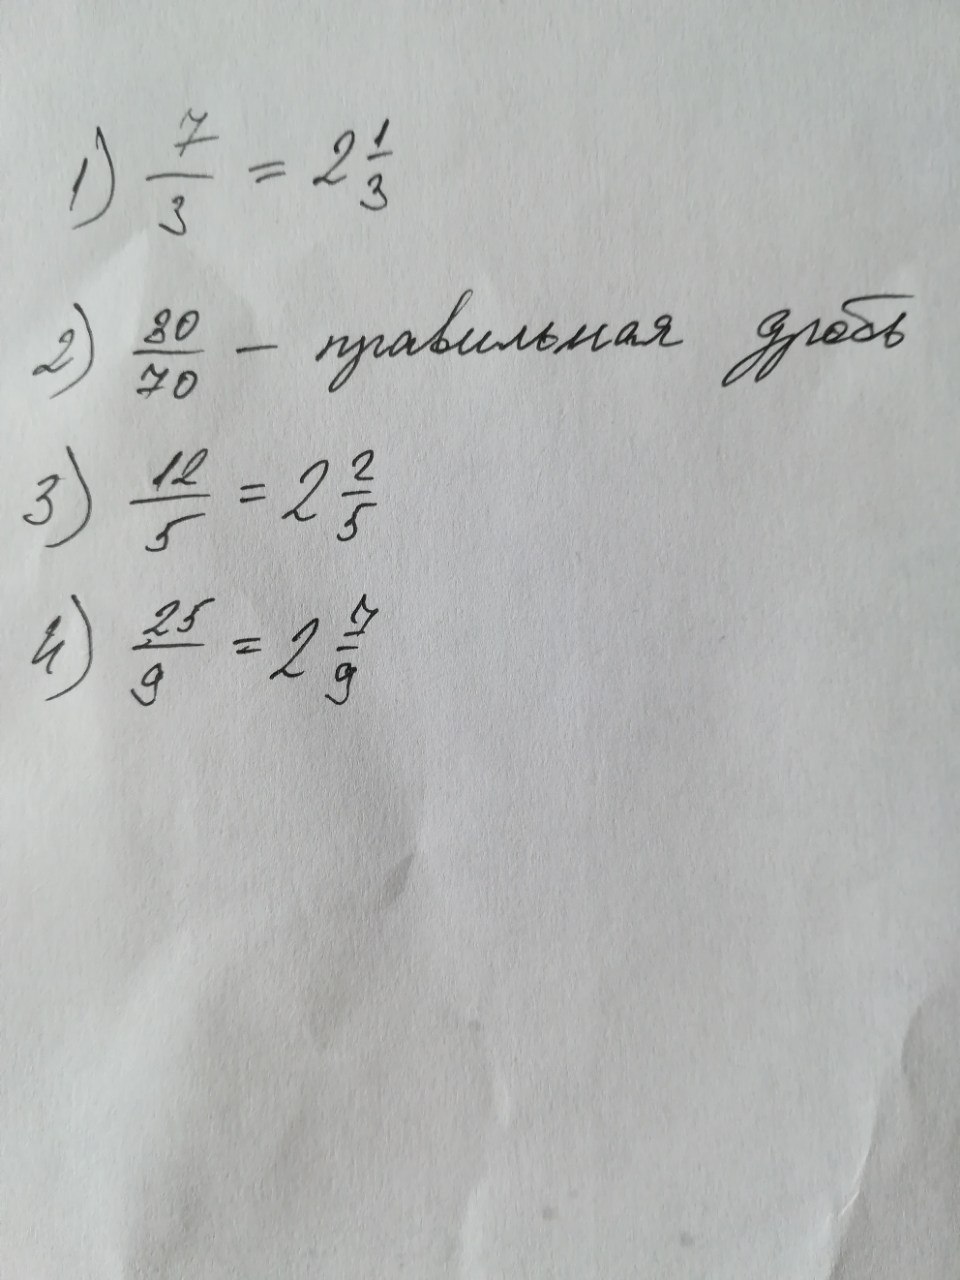 1) 7/3 = 2 1/3
2) 80/70 - правильная дробь
3) 12/5 = 2 2/5
4) 25/9 = 2 7/9